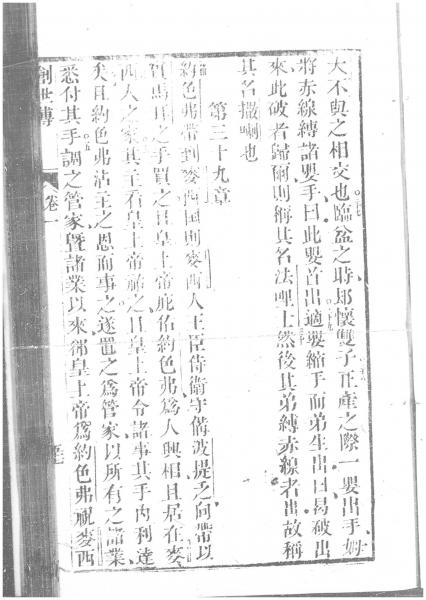 大不與之相交也臨盆之時郍懷雙子正產之際一嬰出手
將赤線縛諸嬰手曰此嬰首出適嬰縮手而弟生出曰曷破出
來此破者歸爾則稱其名法哩士然後其弟縛赤線者出故稱
其名撒喇也
第三十九章
約色弗帶到麥西國則麥西人王臣侍衛守備波提乏向帶以
買馬耳之手買之且皇上帝庇佑約色弗為人興相且居在麥
西人之家其主看皇上帝祐之且皇上帝令諸事其手內利達
矣且約色弗沾主之恩而事之遂置之為管家以所有之諸業
悉付其手調之管家暨諸業以來郍皇上帝為約色弗祝麥西
創世傳
卷一